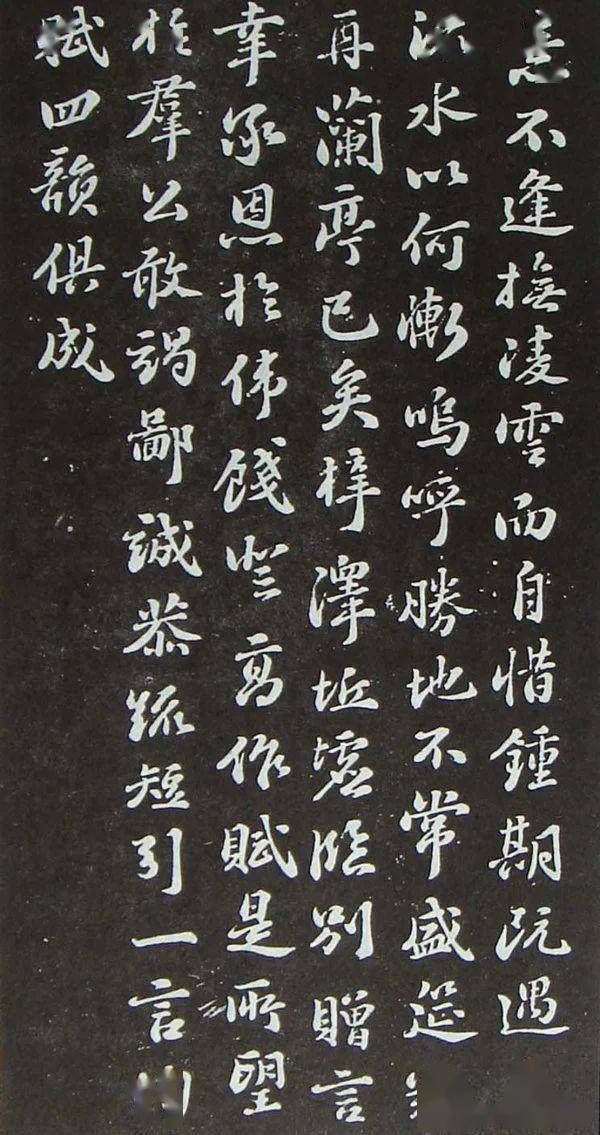 意不逢撫凌雲而自惜鍾期既遇
流水以何慚嗚呼勝地不常盛筵
再蘭亭已矣梓澤坵墟臨別贈言
幸承恩於偉餞登高作賦是所望
於羣公敢竭鄙誠恭疏短引一言
賦四韻俱成